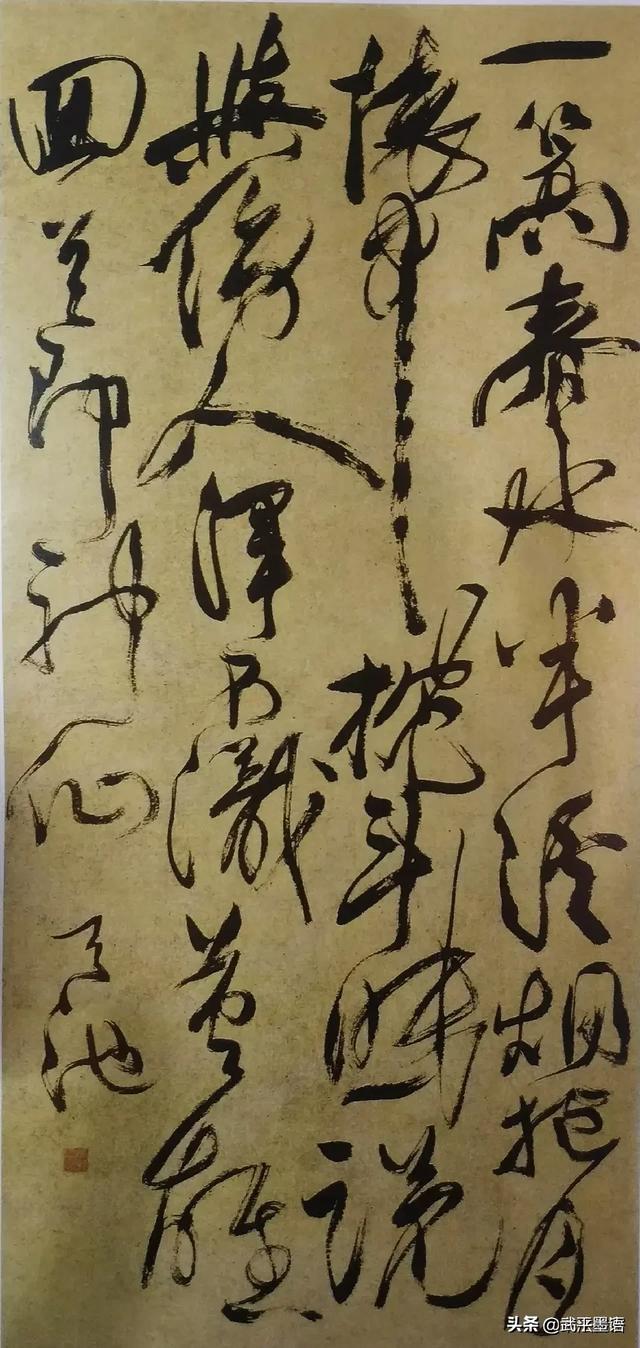 一篙春水半溪烟抱月
懷中枕斗眠說
與傍人渾不識英雄
回首即神仙 天池
头条 @武平墨语